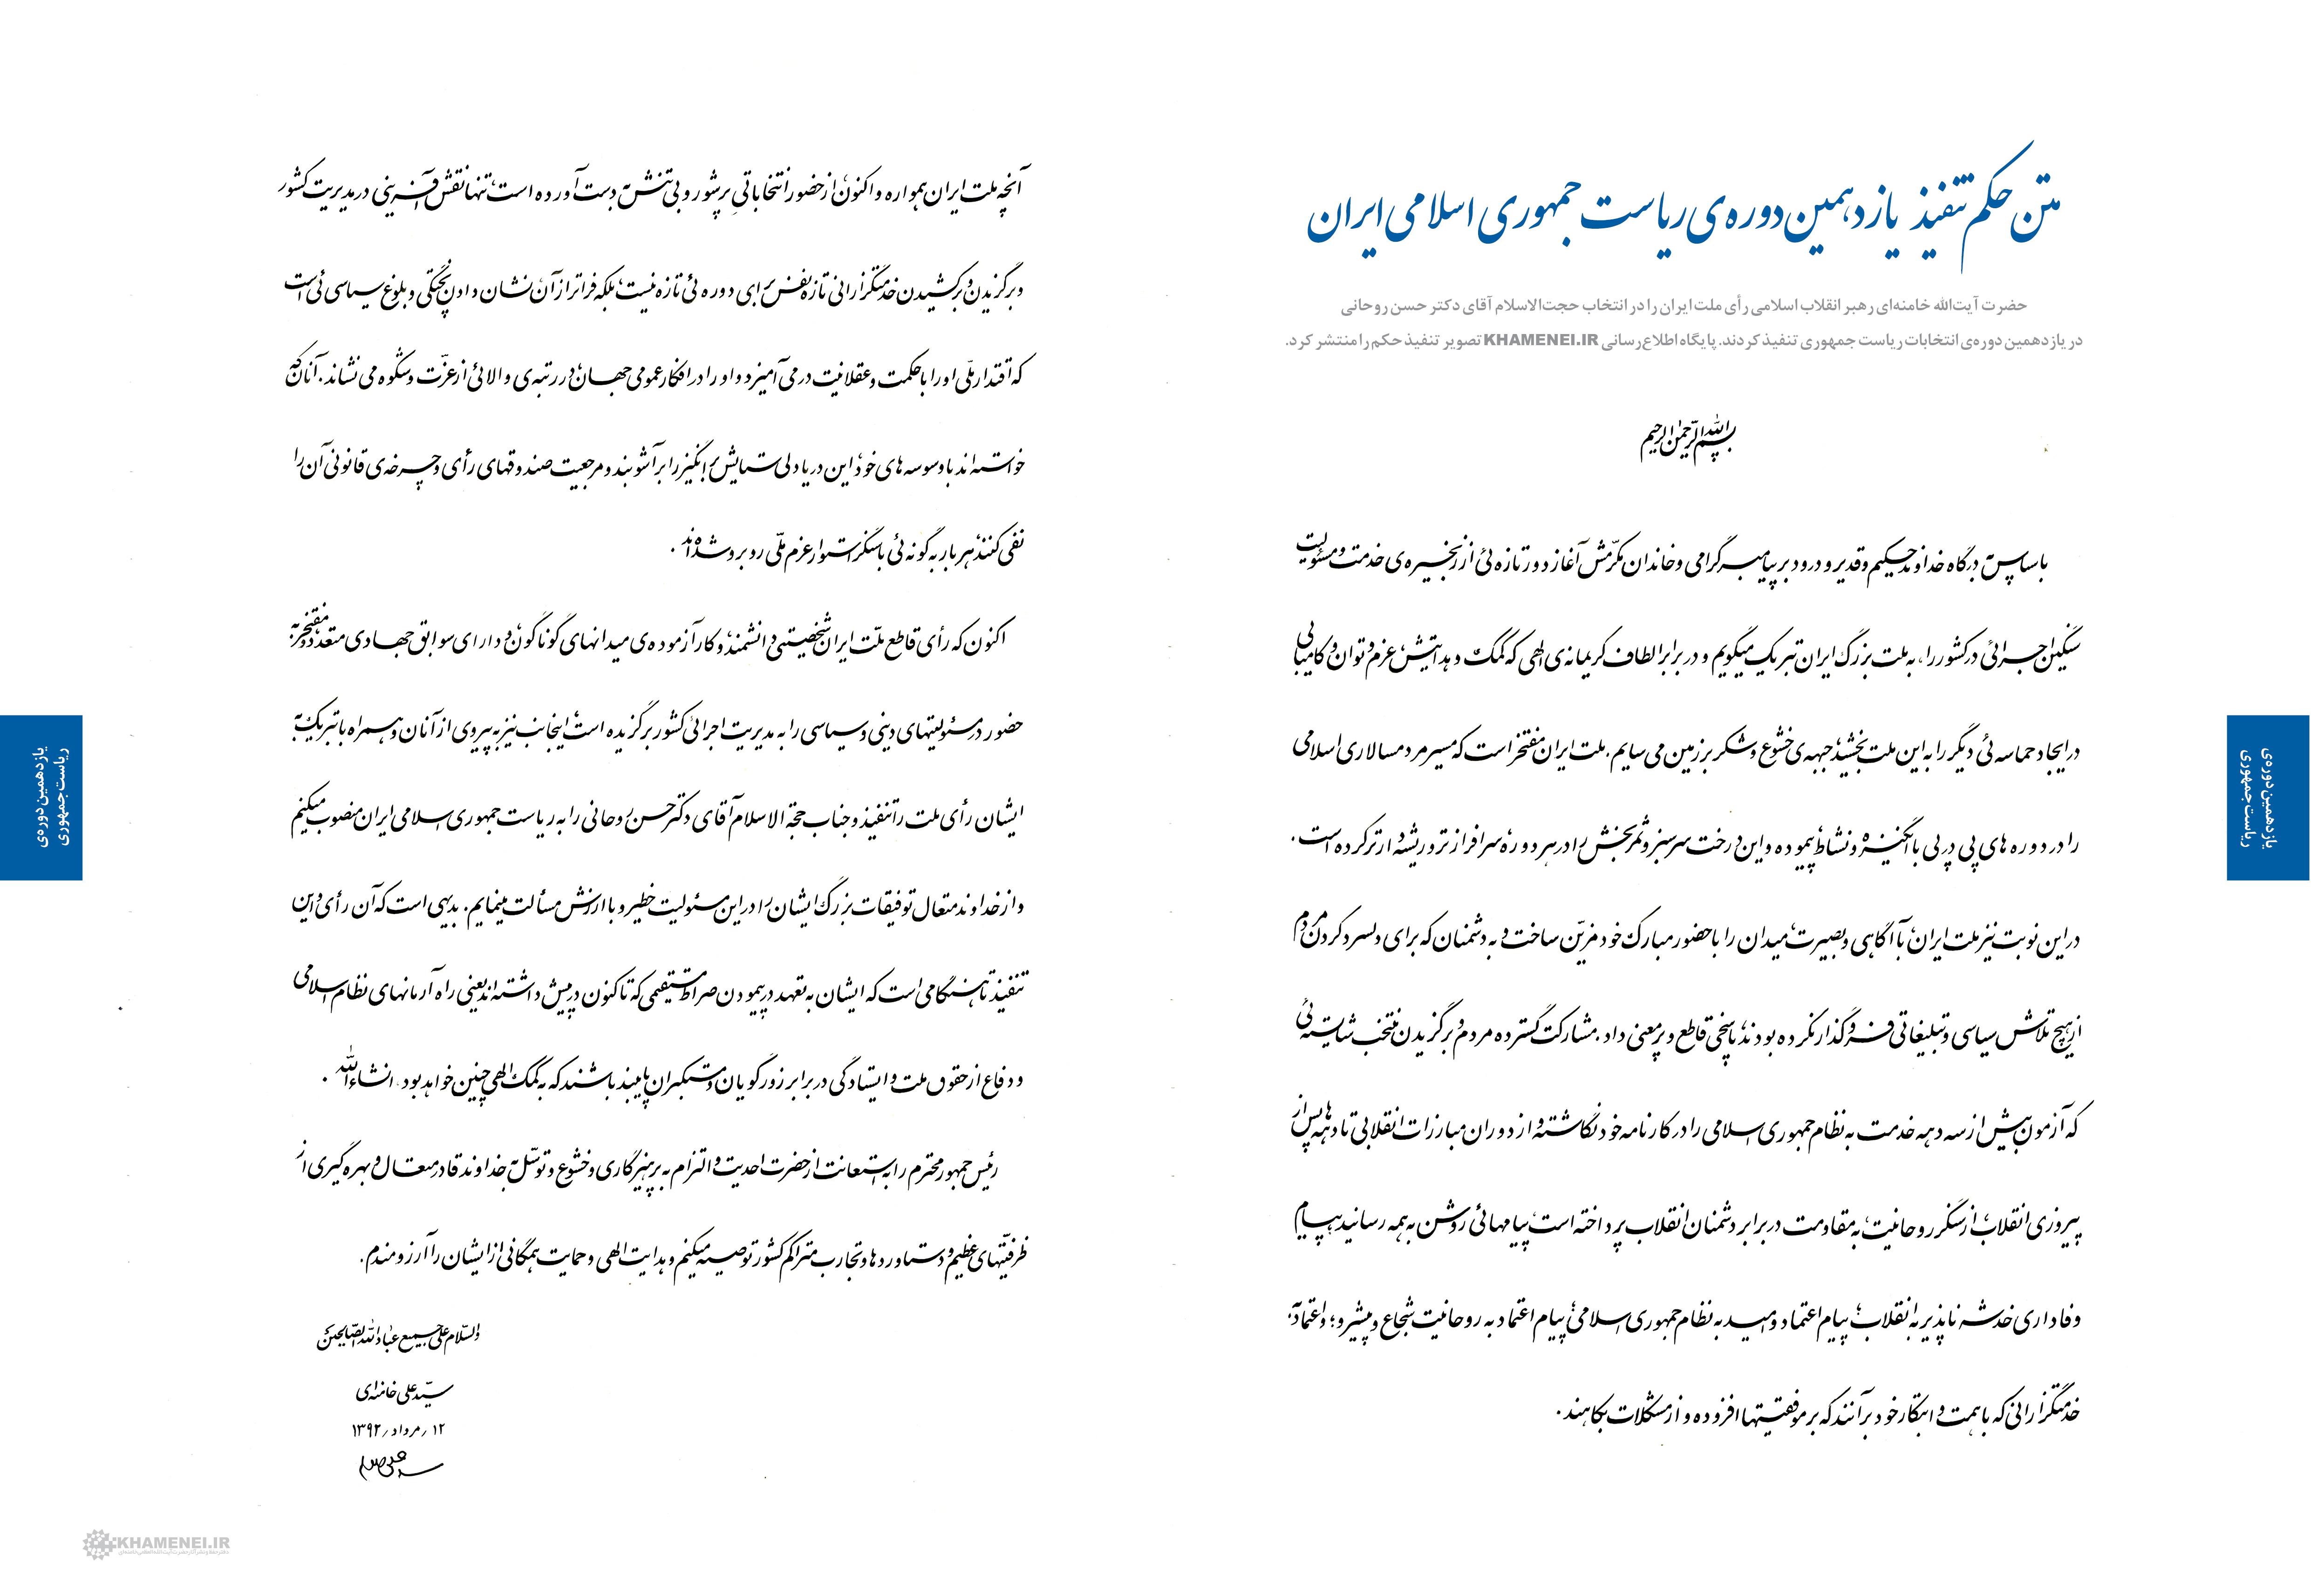 متن حکم تنفیذ یازدهمین دوره‌ی ریاست جمهوری اسلامی ایران
حضرت آیت‌الله خامنه‌ای رهبر انقلاب اسلامی رأی ملت ایران را در انتخاب حجت‌الاسلام آقای دکتر حسن روحانی
در یازدهمین دوره‌ی انتخابات ریاست جمهوری تنفیذ کردند. پایگاه اطلاع‌رسانی KHAMENEI.IR تصویر تنفیذ حکم را منتشر کرد.
بسم الله الرحمن الرحیم
با سپاس به درگاه خداوند حکیم و قدیر و درود بر پیامبر گرامی و خاندان مکرّمش آغاز دور تازه‌ئی از زنجیره‌ی خدمت و مسئولیت
سنگین اجرائی در کشور را، به ملت بزرگ ایران تبریک میگویم و در برابر الطاف کریمانه‌ی الهی که کمک و هدایتش، عزم و توان و کامیابی
در ایجاد حماسه‌ئی دیگر را به این ملت بخشید، جبهه‌ی خشوع و شکر بر زمین می‌سایم. ملت ایران مفتخر است که مسیر مردمسالاری اسلامی
را در دوره‌های پی در پی با انگیزه و نشاط، پیموده و این درخت سرسبز و ثمربخش را در هر دوره، سرافرازتر و ریشه‌دارتر کرده است.
در این نوبت نیز ملت ایران، با آگاهی و بصیرت، میدان را با حضور مبارک خود مزیّن ساخت و به دشمنان که برای دلسرد کردن مردم
از هیچ تلاش سیاسی و تبلیغاتی فروگذار نکرده بودند، پاسخی قاطع و پرمعنی داد. مشارکت گسترده مردم و برگزیدن منتخب شایسته‌ئی
که آزمون بیش از سه دهه خدمت به نظام جمهوری اسلامی را در کارنامه خود نگاشته و از دوران مبارزات انقلابی تا دهه‌های پس از
پیروزی انقلاب، از سنگر روحانیت، به مقاومت در برابر دشمنان انقلاب پرداخته است، پیامهائی روشن به همه رسانید: پیام
وفاداری خدشه‌ناپذیر به انقلاب؛ پیام اعتماد و امید به نظام جمهوری اسلامی؛ پیام اعتماد به روحانیت شجاع و پیشرو؛ و اعتماد به
خدمتگزارانی که با همت و ابتکار خود برآنند که بر موفقیتها افزوده و از مشکلات بکاهند.
آنچه ملت ایران همواره و اکنون، از حضور انتخاباتی پرشور و بی‌تنش به دست آورده است، تنها نقش‌آفرینی در مدیریت کشور
و برگزیدن و برکشیدن خدمتگزارانی تازه‌نفس برای دوره‌ئی تازه نیست، بلکه فراتر از آن، نشان دادن پختگی و بلوغ سیاسی‌ئی است
که اقتدار ملّی او را با حکمت و عقلانیت در می‌آمیزد و او را در افکار عمومی جهان، در رتبه‌ی والائی از عزّت و شکوه می‌نشاند. آنان که
خواسته‌اند با وسوسه‌های خود، این دریادلی ستایش‌برانگیز را برآشوبند و مرجعیت صندوقهای رأی و چرخه‌ی قانونی آن را
نفی کنند، هر بار به گونه‌ئی با سنگر استوار عزم ملّی روبرو شده‌اند.
اکنون که رأی قاطع ملّت ایران، شخصیتی دانشمند، و کارآزموده‌ی میدانهای گوناگون، و دارای سوابق جهادی متعدد و مفتخر به
حضور در مسئولیتهای دینی و سیاسی را به مدیریت اجرائی کشور برگزیده است، اینجانب نیز به پیروی از آنان و همراه با تبریک به
ایشان رأی ملت را تنفیذ و جناب حجة الاسلام آقای دکتر حسن روحانی را به ریاست جمهوری اسلامی ایران منصوب میکنم
و از خداوند متعال توفیقات بزرگ ایشان را در این مسئولیت خطیر و باارزش مسألت مینمایم. بدیهی است که آن رأی و این
تنفیذ تا هنگامی است که ایشان به تعهد در پیمودن صراط مستقیمی که تاکنون در پیش داشته‌اند یعنی راه آرمانهای نظام اسلامی
و دفاع از حقوق ملت و ایستادگی در برابر زورگویان و مستکبران پایبند باشند که به کمک الهی چنین خواهد بود. انشاءالله.
رئیس جمهور محترم را به استعانت از حضرت احدیت و التزام به پرهیزگاری و خشوع و توسّل به خداوند قادر متعال و بهره‌گیری از
ظرفیّتهای عظیم و دستاوردها و تجارب متراکم کشور توصیه میکنم و هدایت الهی و حمایت همگانی از ایشان را آرزومندم.
والسّلام علی جمیع عباد الله الصّالحین
سیّد علی خامنه‌ای
۱۲ / مرداد / ۱۳۹۲
یازدهمین دوره‌ی
ریاست جمهوری
یازدهمین دوره‌ی
ریاست جمهوری
KHAMENEI.IR